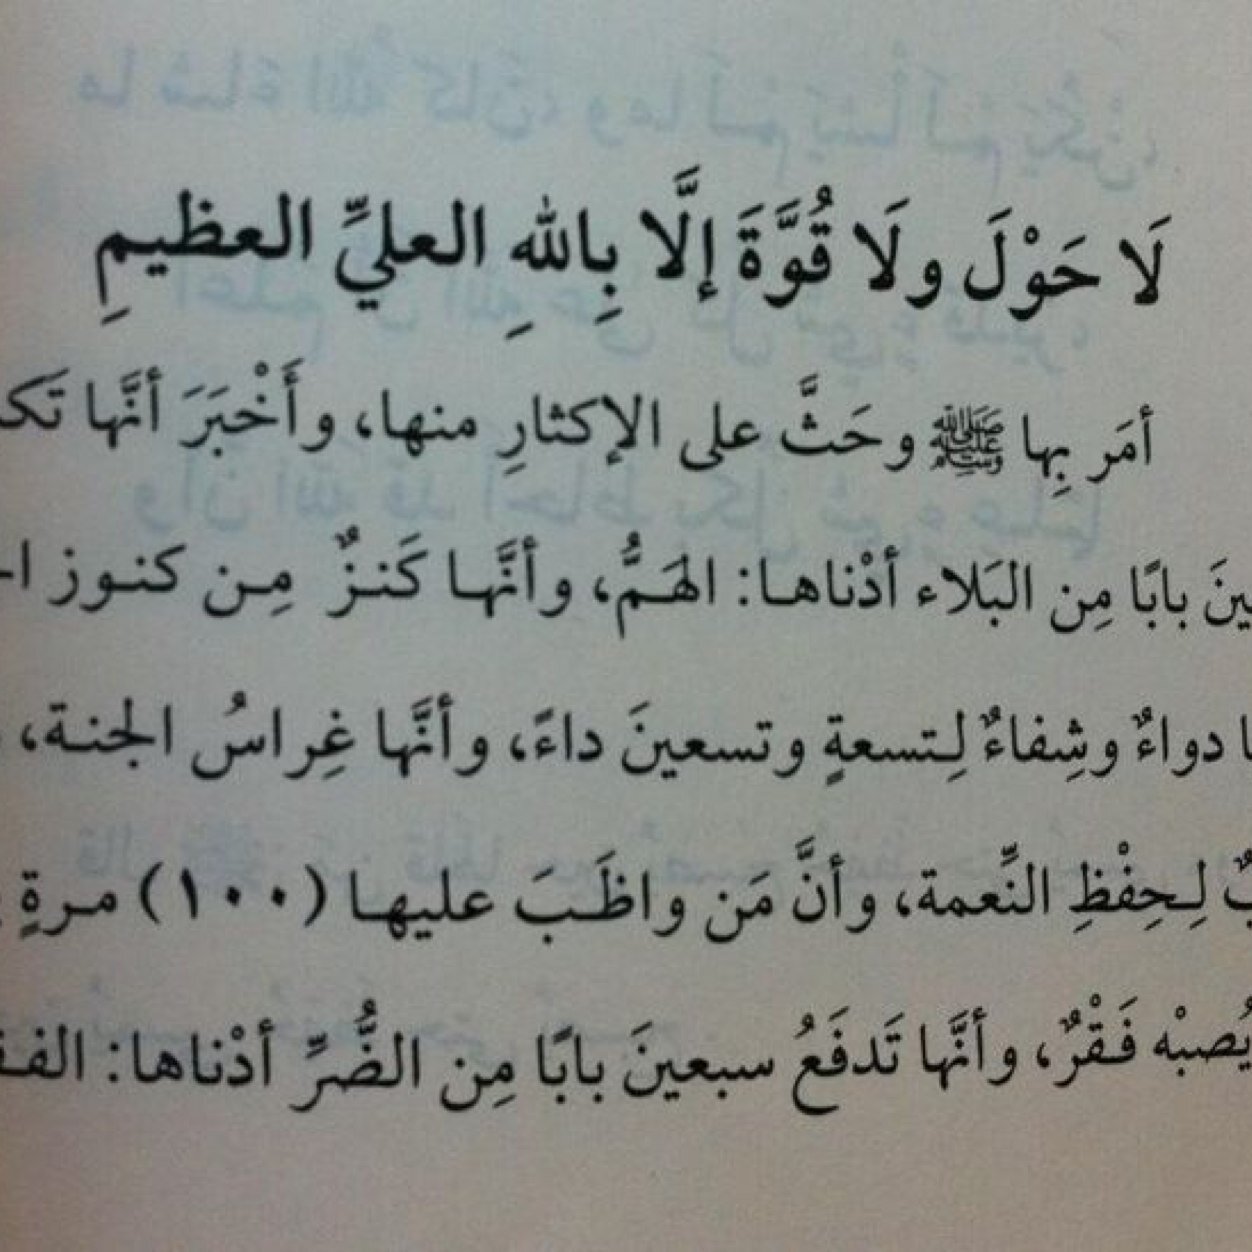 لَا حَوْلَ ولَا قُوَّةَ إلَّا بِاللهِ العليِّ العظيمِ
أمَر بِها ﷺ وحَثَّ على الإكثارِ منها، وأَخْبَرَ أنَّها
بابًا مِن البَلاء أدْناها: الهَمُّ، وأنَّها كَنزٌ مِن كنوز
دواءٌ وشِفاءٌ لِتسعةٍ وتسعينَ داءً، وأنَّها غِراسُ الجنة،
لِحِفْظِ النِّعمة، وأنَّ مَن واظَبَ عليها (١٠٠) مرةٍ
يُصبْه فَقْرٌ، وأنَّها تَدفَعُ سبعينَ بابًا مِن الضُّرِّ أدْناها: